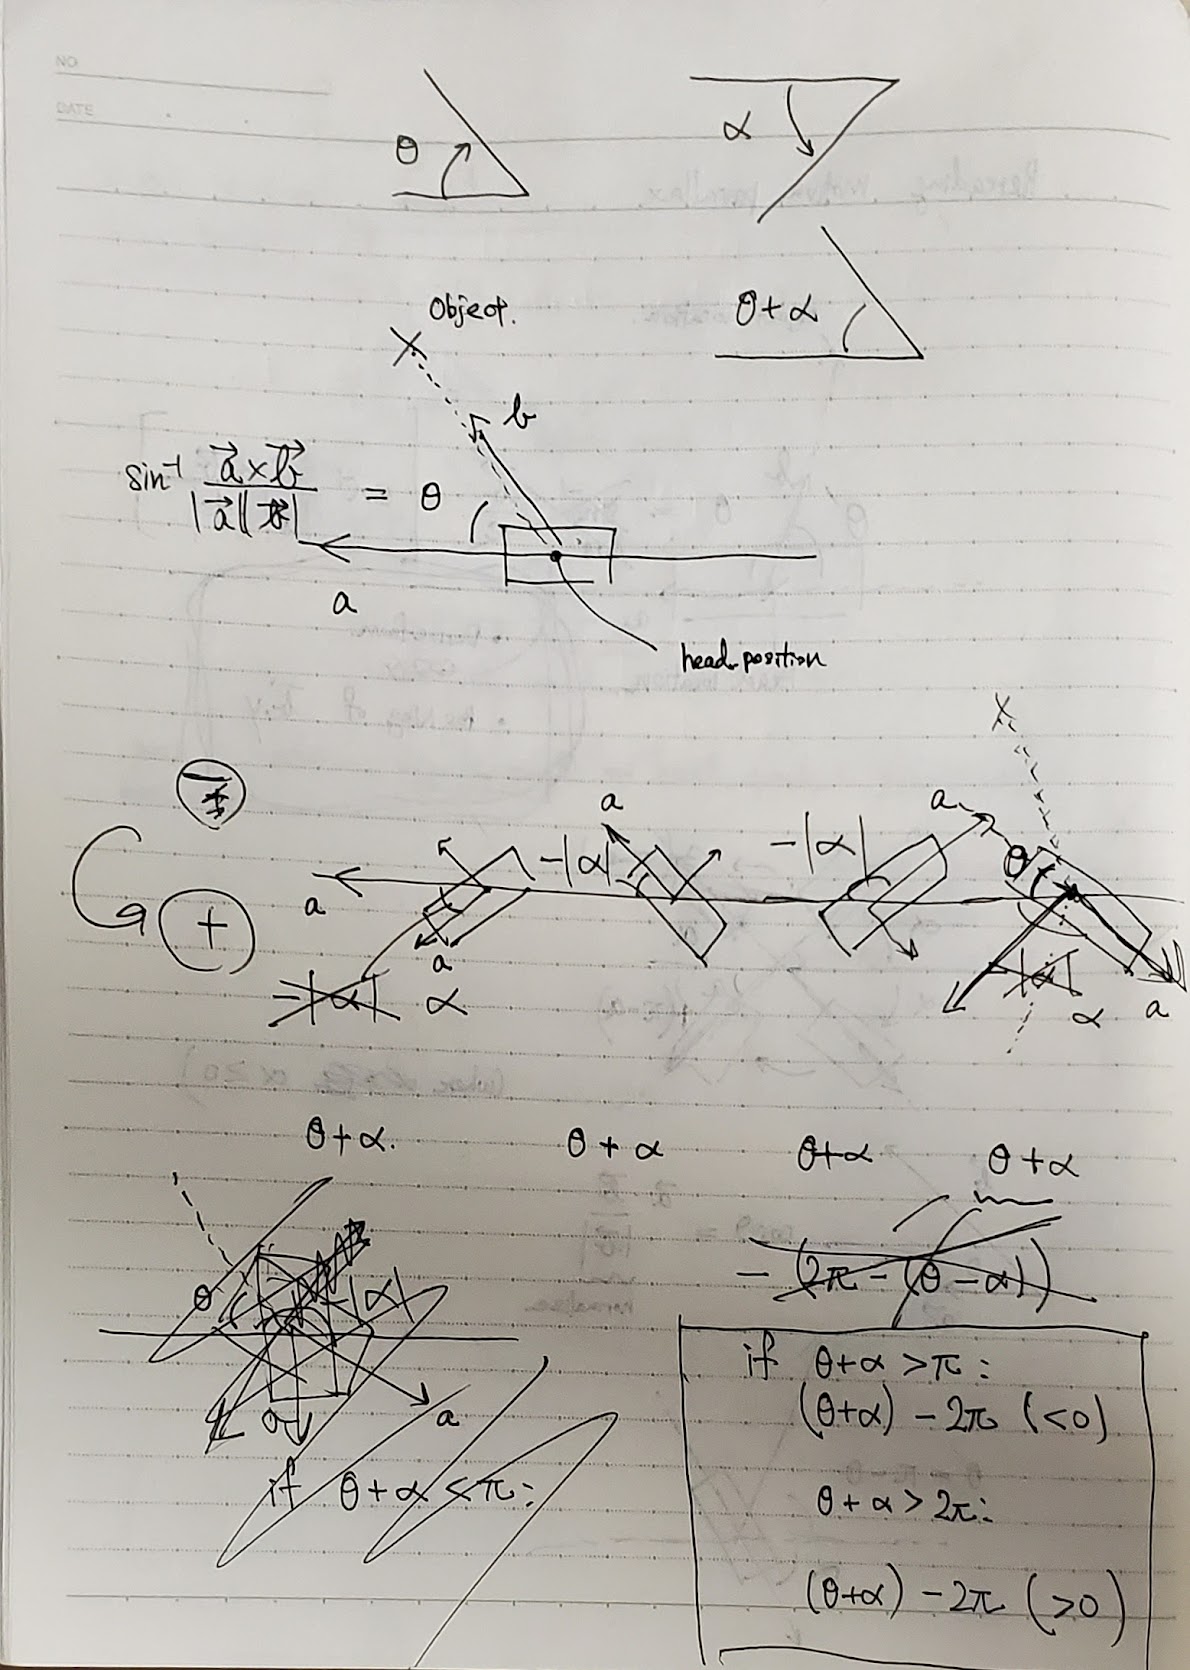 NO
DATE
θ
α
θ+α
Object.
b
sin⁻¹ a⃗×b⃗ / |a⃗||b⃗| = θ
a
head position
−
+
a
-|α|
a
-|α|
a
θ
a
-|α| α
-|α|
α
a
θ+α.
θ+α
θ+α
θ+α
θ
-|α|
-(2π-(θ-α))
a
a
if θ+α>π:
(θ+α)-2π (<0)
if θ+α<π:
θ+α>2π:
(θ+α)-2π (>0)